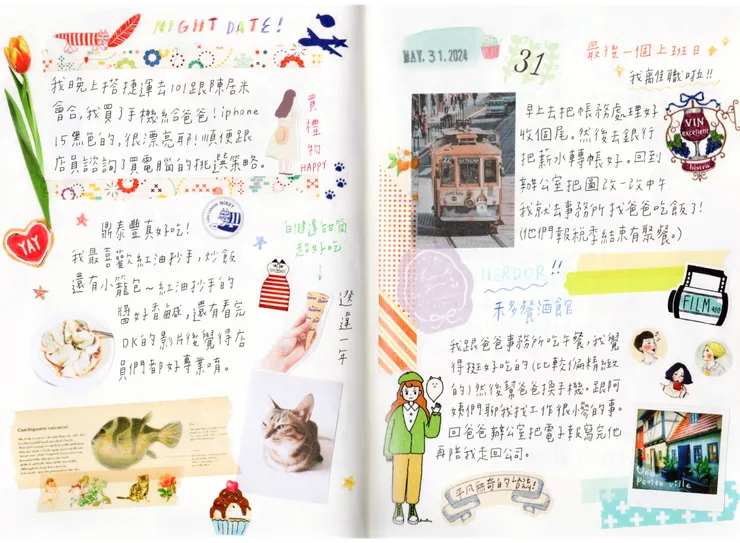 NIGHT DATE!
我晚上搭捷運去101跟陳居米
會合,我買了手機給爸爸!iphone
15黑色的,很漂亮耶!順便跟
店員諮詢了買電腦的挑選策略。
買禮物
HAPPY
YAY
鼎泰豐真好吃!
我最喜歡紅油抄手,炒飯
還有小籠包~紅油抄手的
醬好香鹹,還有看完
OK的影片後覺得店
員們都好專業唷。
甜筒
超好吃
選達一年
MAY.31.2024
31
最後一個上班日
我離職啦!!
早上去把帳務處理好
收個尾。然後去銀行
把薪水轉帳好。回到
辦公室把圖改一改中午
我就去事務所找爸爸吃飯了!
(他們報稅季結束有聚餐。)
VIN
excellent
bistro
HERDOR!!
禾多餐酒館
FILM 400
我跟爸爸事務所吃午餐,我覺
得挺好吃的(比較偏精緻
的)然後幫爸爸換手機。跟阿
姨們聊我找工作很小勞的事。
回爸爸辦公室把電子報寫完他
再陪我走回公司。
平凡無奇的Last Day!
petite ville